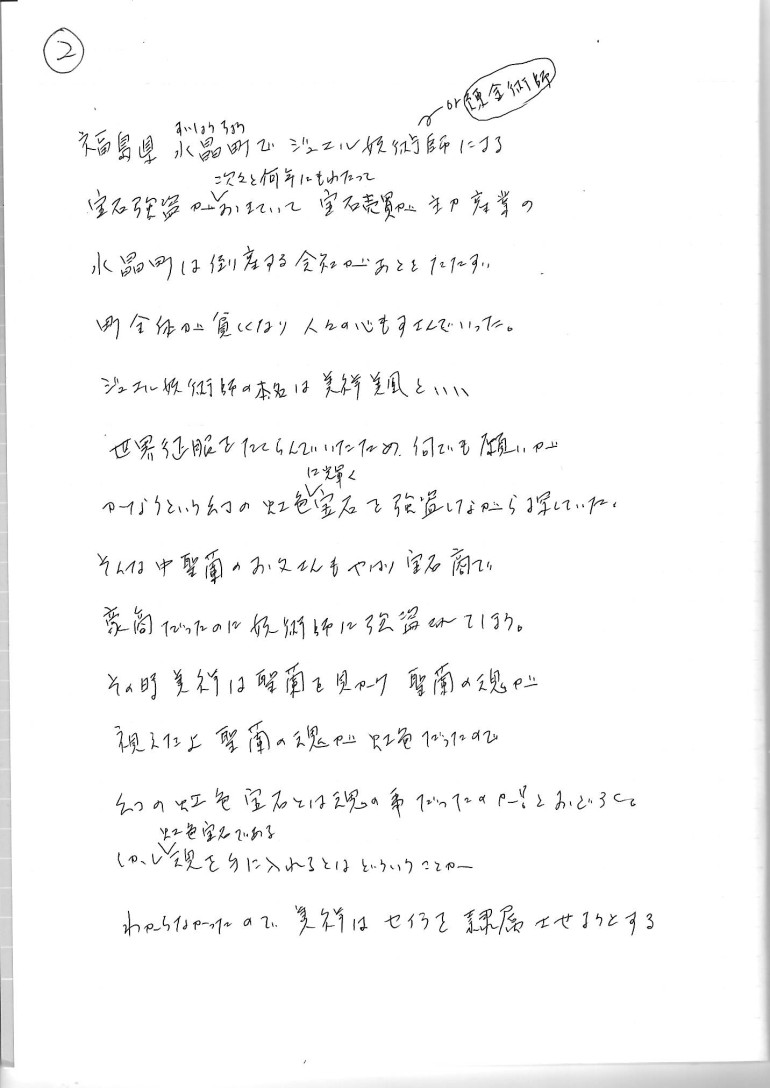 ②
or 錬金術師
すいしょうちょう
福島県 水晶町で ジュエル妖術師による
次々と何年にもわたって
宝石強盗がおきていて 宝石売買が主力産業の
水晶町は倒産する会社があとをたたず、
町全体が貧しくなり 人々の心もすさんでいった。
ジュエル妖術師の本名は美祥美風といい、
世界征服をたくらんでいたため、何でも願いが
に輝く
かなうという幻の虹色宝石を強盗しながら探していた。
そんな中聖蘭のお父さんもやはり宝石商で
豪商だったのに妖術師に強盗されてしまう。
その時美祥は聖蘭を見かけ 聖蘭の魂が
視えたよ 聖蘭の魂が虹色だったので
幻の虹色宝石とは魂の事だったのか!とおどろく。
虹色宝石である
しかし魂を手に入れるとはどういうことか
わからなかったので、美祥はセイラを隷属させようとする